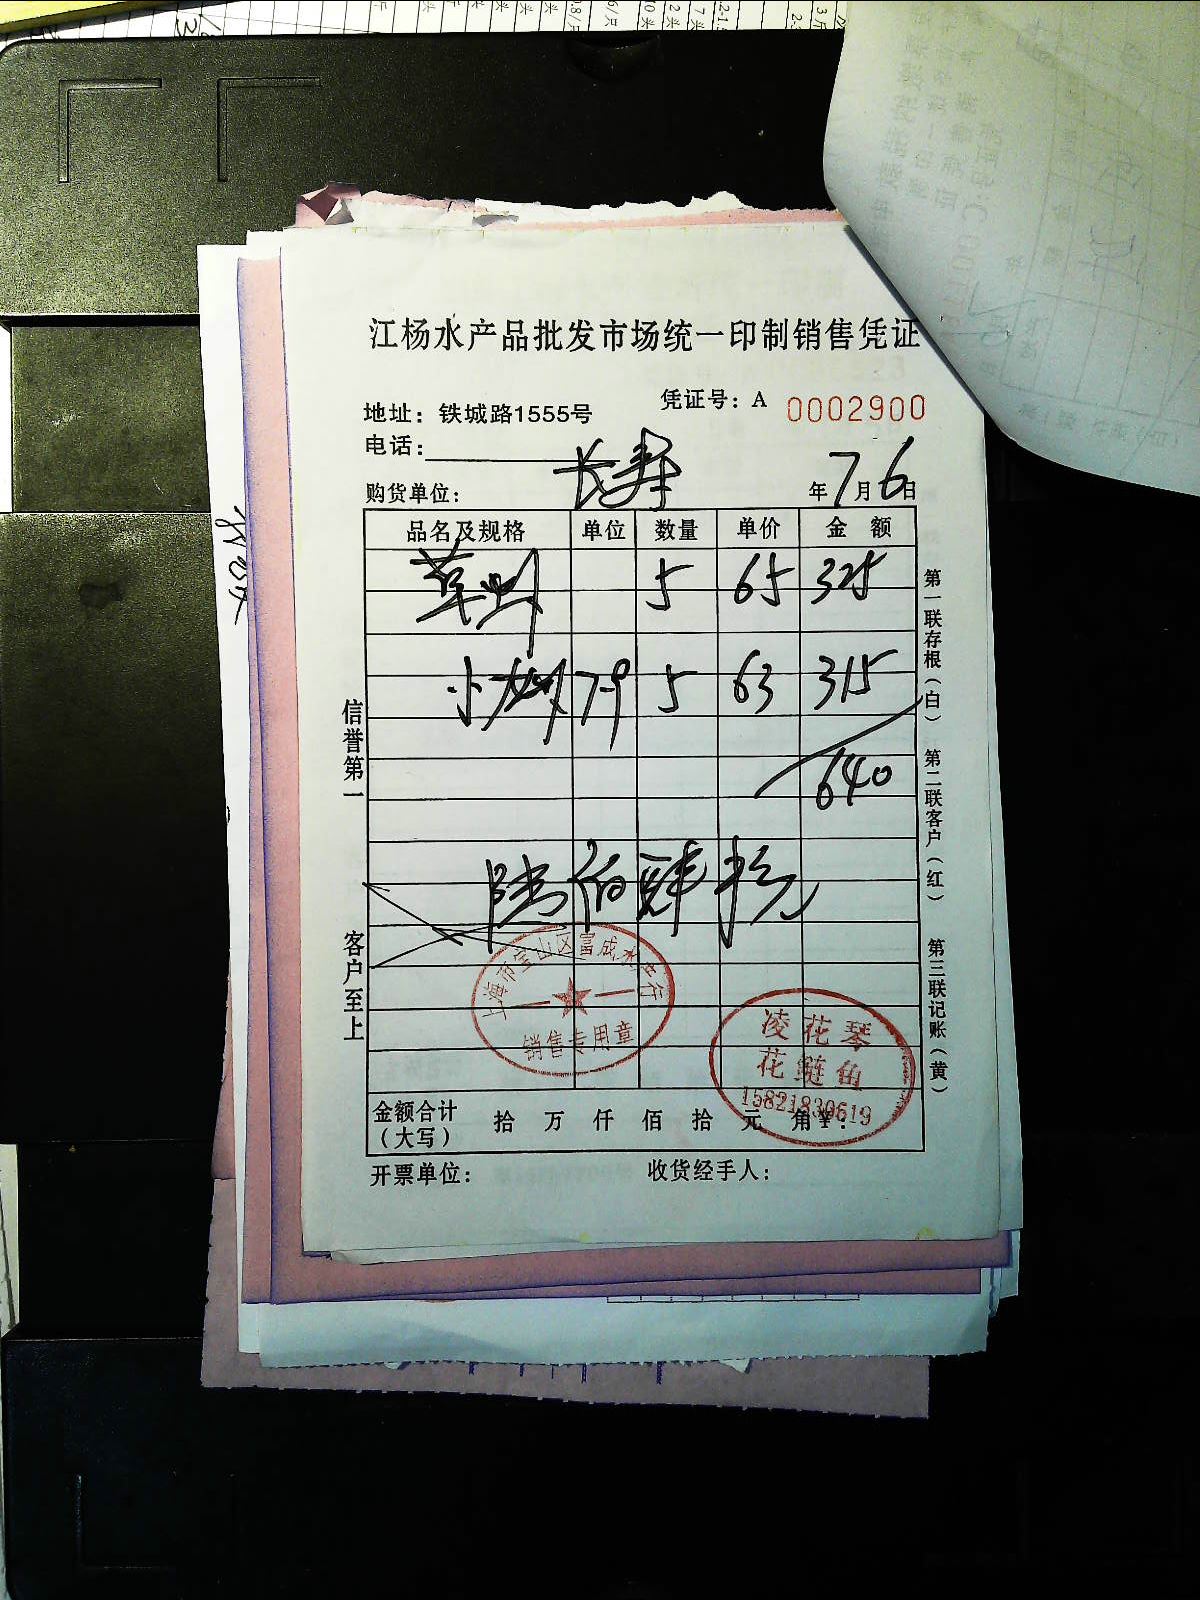 江杨水产品批发市场统一印制销售凭证
地址：铁城路1555号
凭证号：A 0002900
电话：
购货单位： 长寿
年7月6日
品名及规格 单位 数量 单价 金 额
草虾 5 65 325
小龙虾 7-9 5 63 315
640
陆佰肆拾元
信誉第一
客户至上
第一联存根（白）
第二联客户（红）
第三联记账（黄）
上海市宝山区富成水产行
销售专用章
凌花琴
花鲢鱼
15821830619
金额合计
（大写） 拾 万 仟 佰 拾 元 角 ¥：
开票单位： 收货经手人：